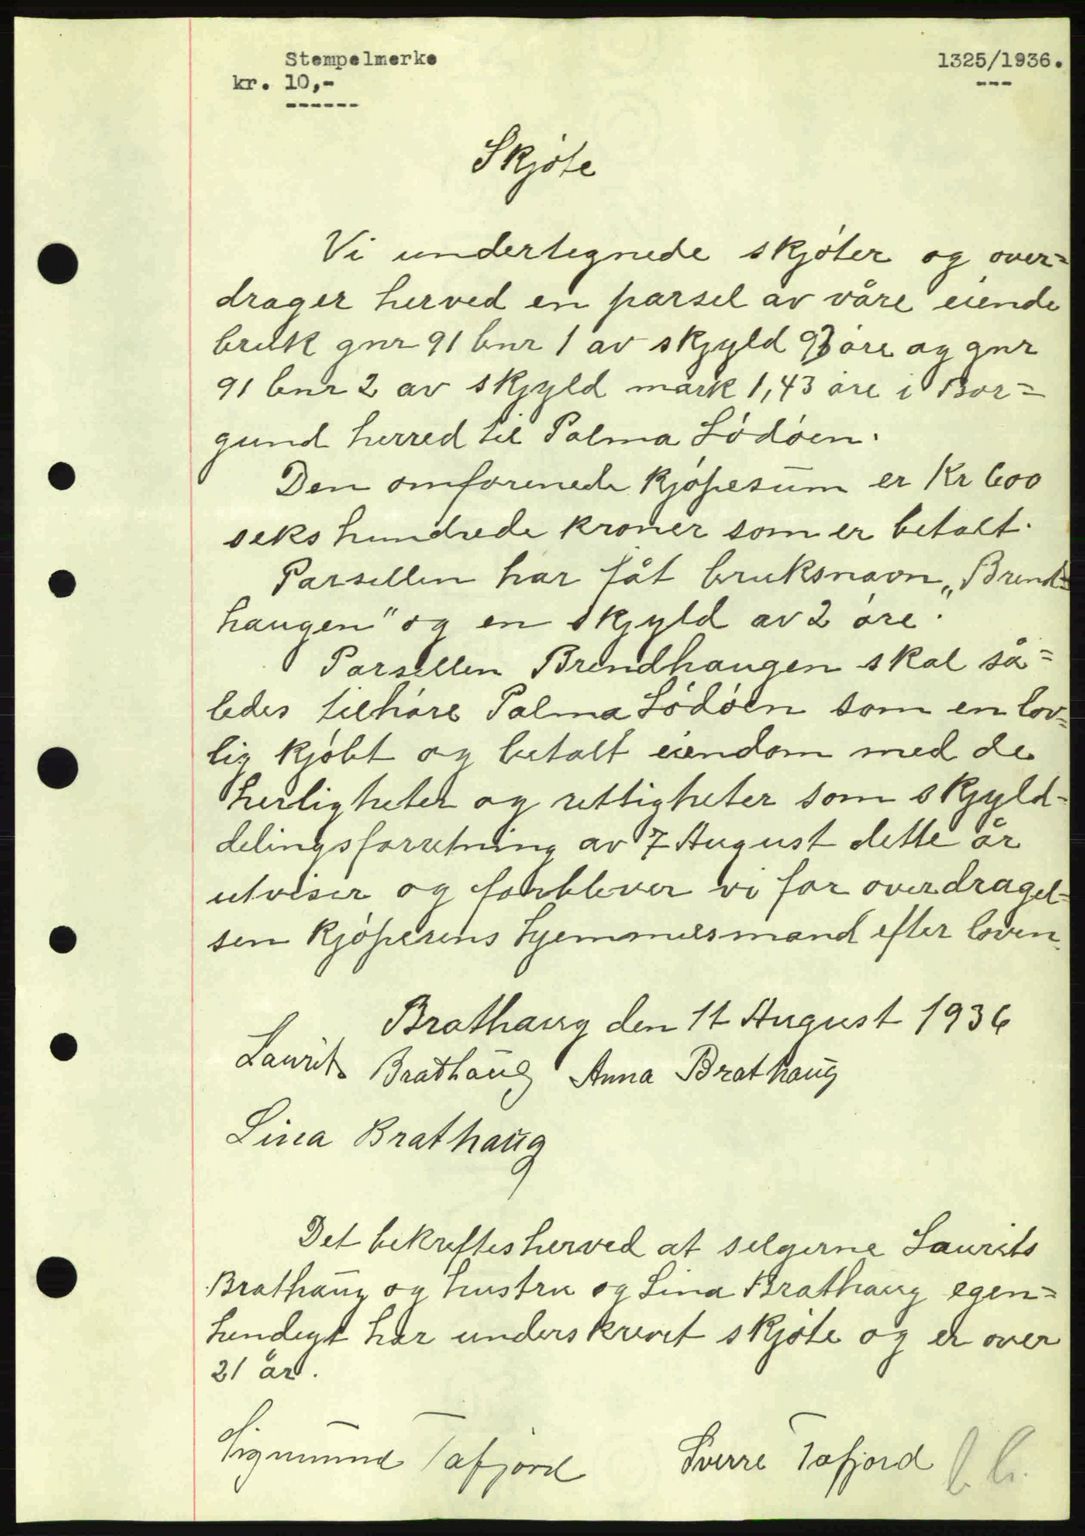 Stempelmerke
kr. 10,-
------
1325/1936.
---
Skjøte
Vi undertegnede skjøter og over=
drager herved en parsel av våre eiende
bruk gnr 91 bnr 1 av skyld 93 øre og gnr
91 bnr 2 av skyld mark 1,43 øre i Bor=
gund herred til Palma Lødøen.
Den omforenede kjøpesum er Kr 600
sekshundrede kroner som er betalt.
Parsellen har fåt bruksnavn „Brend=
haugen" og en skyld av 2 øre.
Parsellen Brendhaugen skal så=
ledes tilhøre Palma Lødøen som en lov=
lig kjøbt og betalt eiendom med de
herligheter og rettigheter som skyld-
delingsforretning av 7 August dette år
utviser og forblever vi for overdragel=
sen kjøperens hjemmelsmand efter loven.
Brathaug den 11 August 1936
Laurits Brathaug Anna Brathaug
Lina Brathaug
Det bekreftes herved at selgerne Laurits
Brathaug og hustru og Lina Brathaug egen=
hendigt har underskrevet skjøte og er over
21 år.
Sigmund Tafjord Sverre Tafjord